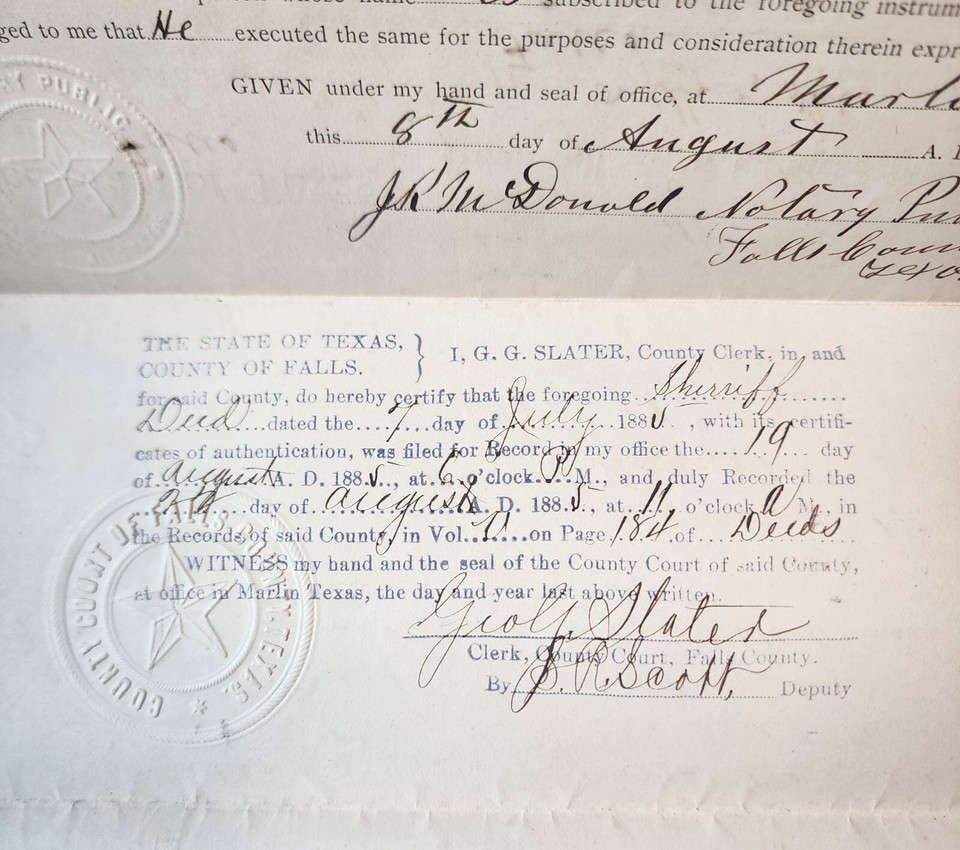 subscribed to the foregoing instrum
ged to me that He executed the same for the purposes and consideration therein expr
GIVEN under my hand and seal of office, at Marl
this 8th day of August A.
Y PUBLIC
JK McDonald Notary Pu
Falls Coun
Texa
THE STATE OF TEXAS,
COUNTY OF FALLS.
} I, G. G. SLATER, County Clerk, in and
for said County, do hereby certify that the foregoing Sherriff
Deed dated the 7 day of July 1885, with its certifi-
cates of authentication, was filed for Record in my office the 19 day
of August A. D. 1885, at 6 o'clock P M., and duly Recorded the
24 day of August A. D. 1885, at 11 o'clock A M., in
the Records of said County, in Vol. on Page 184 of Deeds
WITNESS my hand and the seal of the County Court of said County,
at office in Marlin Texas, the day and year last above written.
Geo G. Slater
Clerk, County Court, Falls County.
By Scott, Deputy
COUNTY COURT OF FALLS COUNTY, TEXAS.